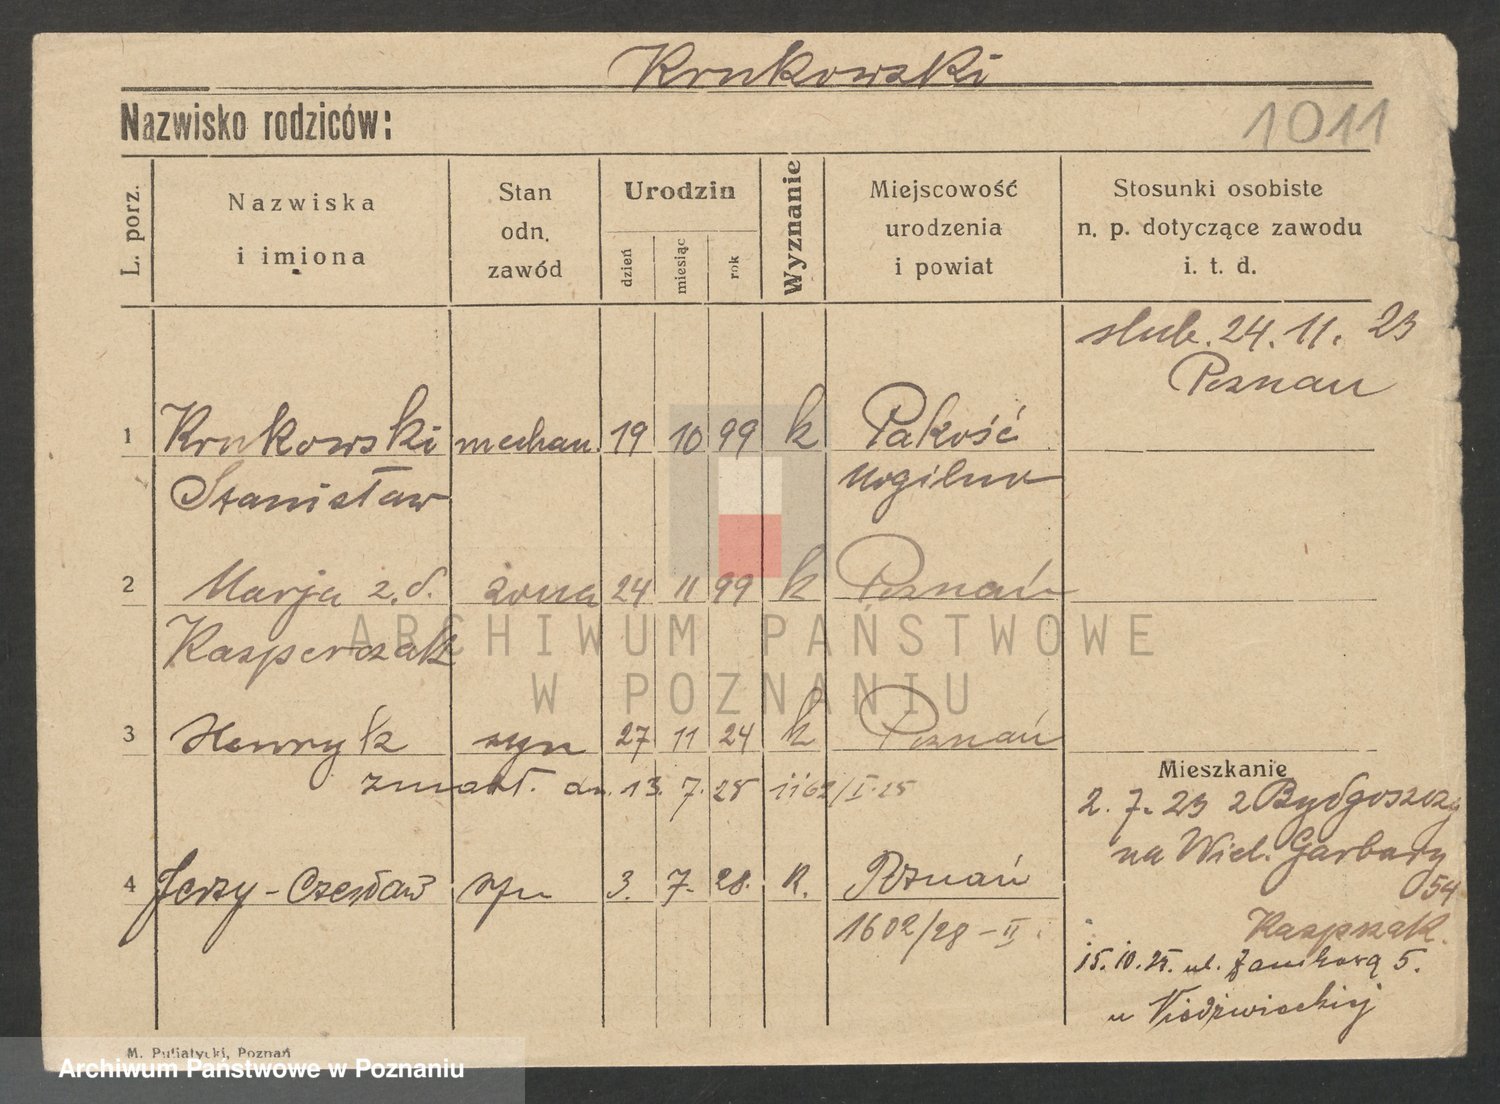 Krukowski
Nazwisko rodziców:
1011
L. porz.
Nazwiska
i imiona
Stan
odn.
zawód
Urodzin
dzień
miesiąc
rok
Wyznanie
Miejscowość
urodzenia
i powiat
Stosunki osobiste
n. p. dotyczące zawodu
i. t. d.
slub. 24. 11. 23
Poznan
1 Krukowski mechan. 19 10 99 k Pakość
Stanisław Mogilno
2 Marja z. d. żona 24 11 99 k Poznań
Kasperczak
3 Henryk syn 27 11 24 k Poznań
zmarł. dn. 13. 7. 25 1162/I.25
Mieszkanie
2. 7. 23 z Bydgoszczy
na Wiel. Garbary
54
Kaspszak.
4 Jerzy-Czesław syn 3. 7. 28. k. Poznań
1602/28-II.
15. 10. 25. ul. Zamkowa 5.
u Niedźwieckiej
M. Putiatycki, Poznań
ARCHIWUM PAŃSTWOWE
W POZNANIU
Archiwum Państwowe w Poznaniu